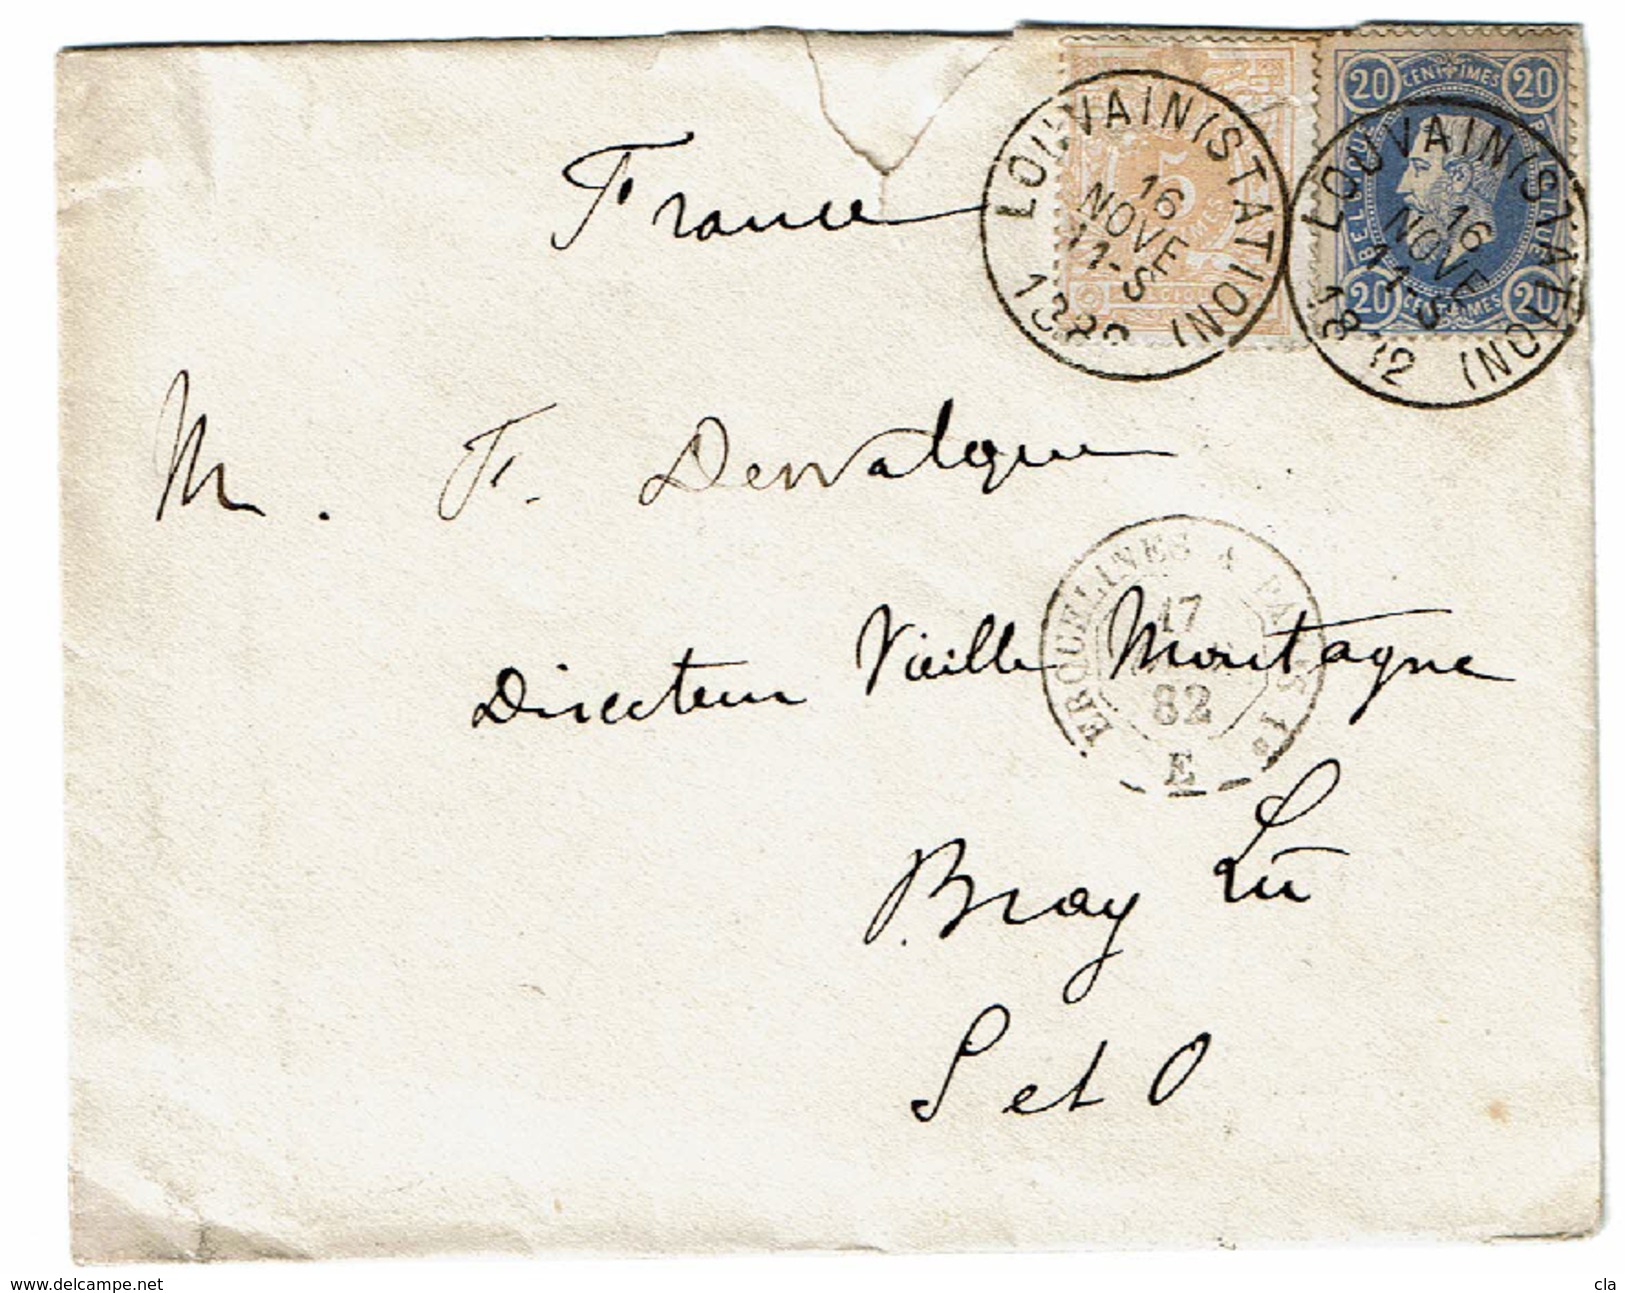 20 CENTIMES 20
5
BELGIQUE
20 CENTIMES 20
LOUVAIN (STATION)
16
NOVE
11-S
1882
LOUVAIN (STATION)
16
NOVE
11-S
1882
France
M. F. Dewalque
ERQUELINES A PARIS 1º
17
82
E
Directeur Vieille Montagne
Bray Lû
S et O
www.delcampe.net
cla